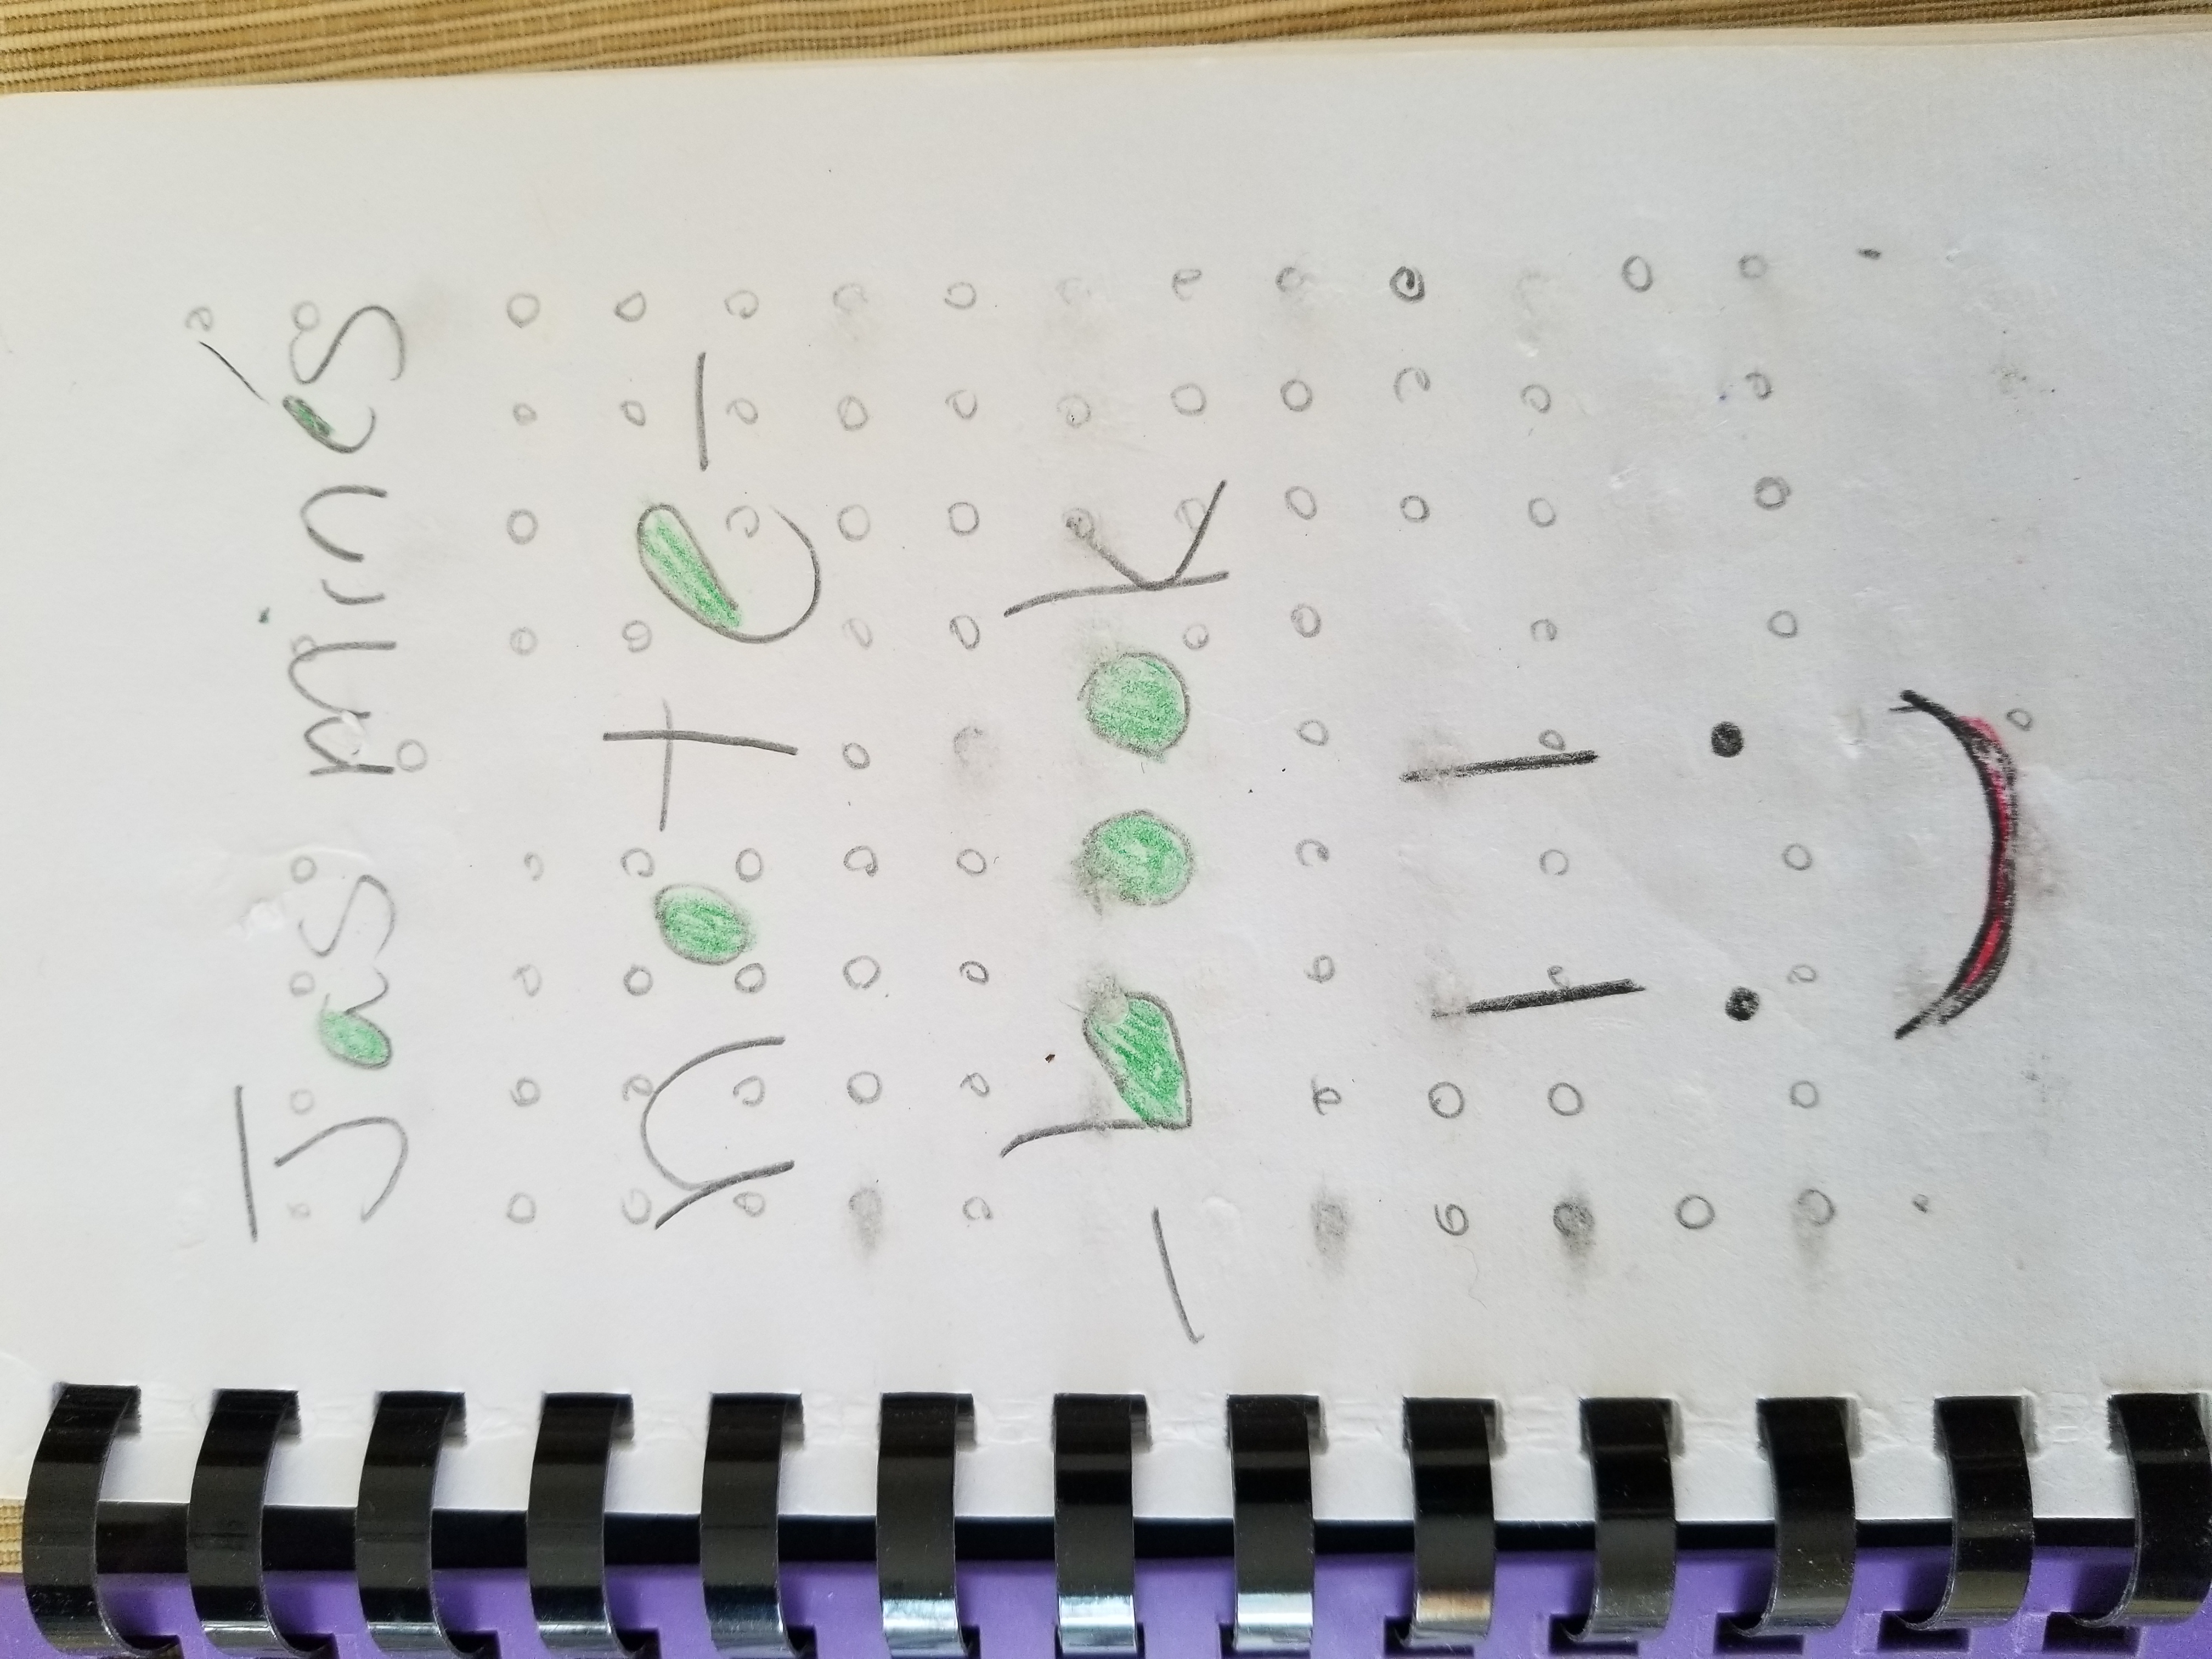 Jasmine's
note-
-book